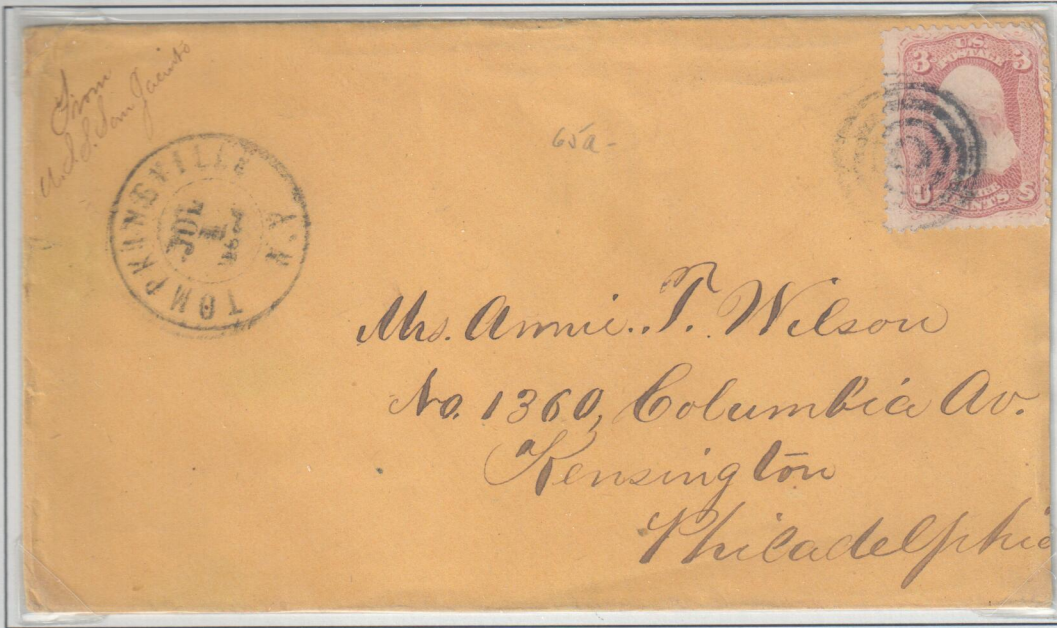 From
U.S.S. San Jacinto
TOMPKINSVILLE N.Y.
JUL
1
65a-
3 U.S. 3
POSTAGE
THREE CENTS
U S
Mrs. Annie. T. Wilson
No. 1360, Columbia Av.
Kensington
Philadelphia